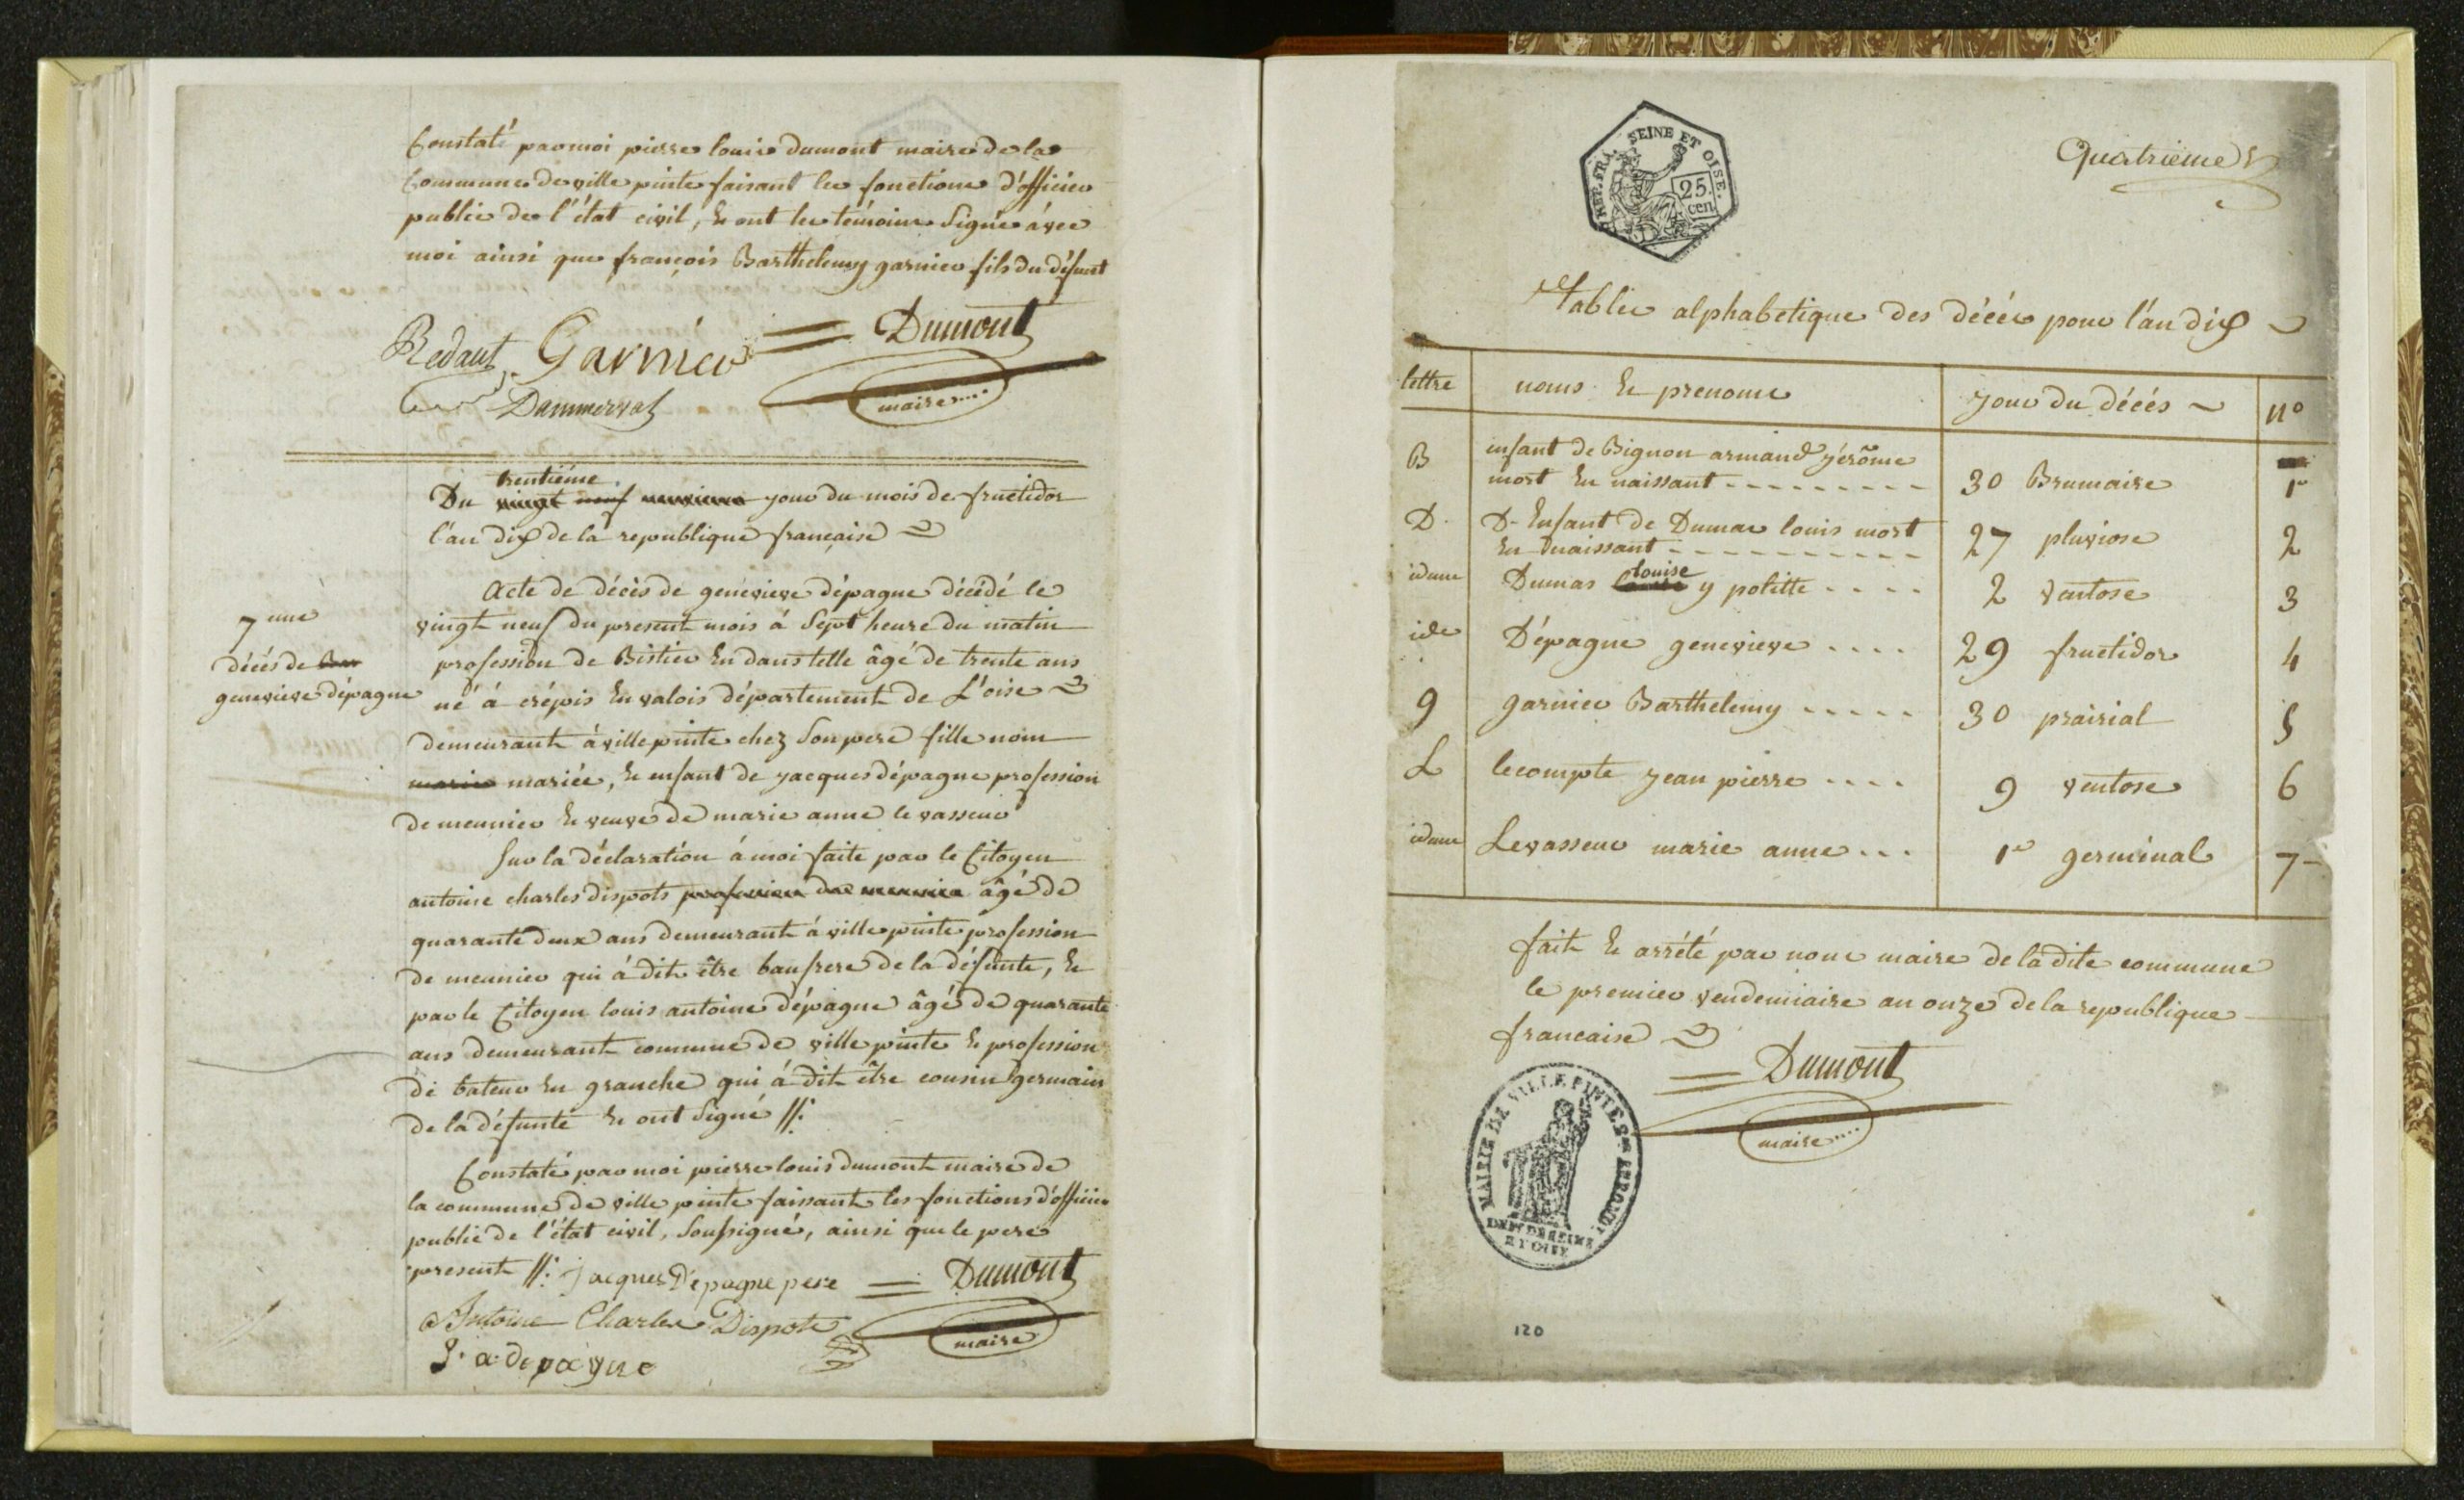 Constaté par moi pierre louis dumont maire de la
Commune de ville pinte faisant les fonctions d'officier
public de l'état civil, Et ont les témoins Signés avec
moi ainsi que françois Barthelemy garnier fils du défunt
Redaut Garnier Dumont
Dammerval maire
trentiéme
Du vingt neuf jour du mois de fructidor
l'an dix de la republique française
Acte de décès de genevieve dépagne décédé le
vingt neuf du present mois á Sept heure du matin
profession de En danstelle âgé de trente ans
né á crépis En valois département de L'oise
demeurant á ville pinte chez Son pere fille nom
marié mariée, Et enfant de jacques dépagne profession
de meunier Et veuve de marie anne le vasseur
7eme
décés de
genevieve dépagne
Sur la déclaration á moi faite par le Citoyen
antoine charles dispots profession de meunier âgé de
quarante deux ans demeurant á ville pinte profession
de meunier qui á dit être baufrere de la défunte, Et
par le Citoyen louis antoine dépagne âgé de quarante
ans demeurant commune de ville pinte Et profession
de bateur En granche qui á dit être cousin germain
de la défunte Et ont Signé //:
Constaté par moi pierre louis dumont maire de
la commune de ville pinte faissant les fonctions d'officier
public de l'état civil, Soussigné, ainsi que le pere
present //: jacques Dépagne pere Dumont
Antoine Charles Dispots maire
l. a. depagne
REP. FRA. SEINE ET OISE.
25.
cen.
Quatrième
Table alphabetique des décés pour l'an dix
lettre noms Et prenoms jour du décés N°
B enfant de Bignon armand jérôme
mort En naissant 30 Brumaire 1er
D. D- Enfant de Dumas louis mort
En naissant 27 pluviose 2
idem Dumas louise y politte 2 ventose 3
ide Dépagne genevieve 29 fructidor 4
g garnier Barthelemy 30 prairial 5
L lecompte jean pierre 9 ventose 6
idem Levasseur marie anne 1er germinal 7
fait Et arrété par nous maire de la dite commune
le premier vendemiaire an onze de la republique
francaise
Dumont
maire
MAIRIE DE VILLE PINTES
DEPT DE SEINE
ET OISE
120